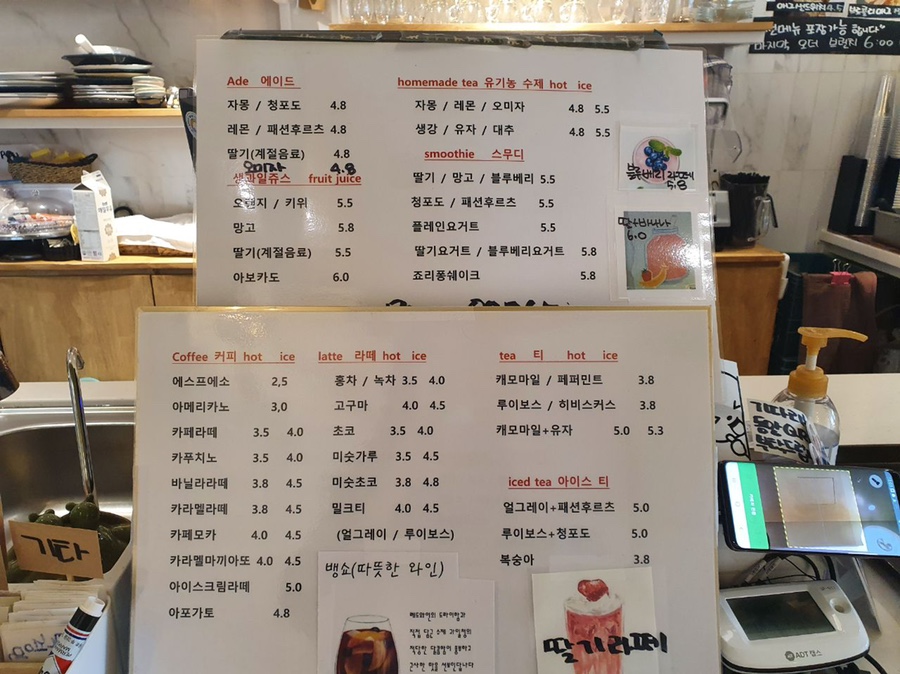 아이스샌드위치4.5
전메뉴 포장가능 합니다"
마지막 오더 브런치 6:00
Ade 에이드
자몽 / 청포도 4.8
레몬 / 패션후르츠 4.8
딸기(계절음료) 4.8
오미자 4.8
생과일쥬스 fruit juice
오렌지 / 키위 5.5
망고 5.8
딸기(계절음료) 5.5
아보카도 6.0
homemade tea 유기농 수제 hot ice
자몽 / 레몬 / 오미자 4.8 5.5
생강 / 유자 / 대추 4.8 5.5
smoothie 스무디
딸기 / 망고 / 블루베리 5.5
청포도 / 패션후르츠 5.5
플레인요거트 5.5
딸기요거트 / 블루베리요거트 5.8
죠리퐁쉐이크 5.8
블루베리 라떼
5.8
딸+바나나
6.0
Coffee 커피 hot ice
에스프에소 2,5
아메리카노 3,0
카페라떼 3.5 4.0
카푸치노 3.5 4.0
바닐라라떼 3.8 4.5
카라멜라떼 3.8 4.5
카페모카 4.0 4.5
카라멜마끼아또 4.0 4.5
아이스크림라떼 5.0
아포가토 4.8
latte 라떼 hot ice
홍차 / 녹차 3.5 4.0
고구마 4.0 4.5
초코 3.5 4.0
미숫가루 3.5 4.5
미숫초코 3.8 4.8
밀크티 4.0 4.5
(얼그레이 / 루이보스)
뱅쇼(따뜻한 와인)
레드와인의 드라이함과
직접 담근 수제 과일청의
적당한 달콤함이 풍부하고
근사한 맛을 선보인답니다
tea 티 hot ice
캐모마일 / 페퍼민트 3.8
루이보스 / 히비스커스 3.8
캐모마일+유자 5.0 5.3
iced tea 아이스 티
얼그레이+패션후르츠 5.0
루이보스+청포도 5.0
복숭아 3.8
딸기라떼
기타
ADT캡스